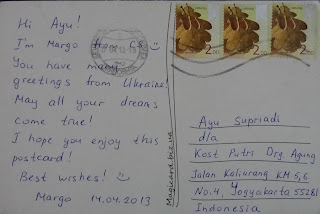 Hi Ayu!
I'm Margo from CS
You have many
greetings from Ukraine!
May all your dreams
come true!
I hope you enjoy this
postcard!
Best wishes!
Margo 14.04.2013
Magicard.biz.ua
2.00
2.00
2.00
Ayu Supriadi
d/a
Kost Putri Org Agung
Jalan Kaliurang KM 5,6
No.4, Yogyakarta 55281
Indonesia